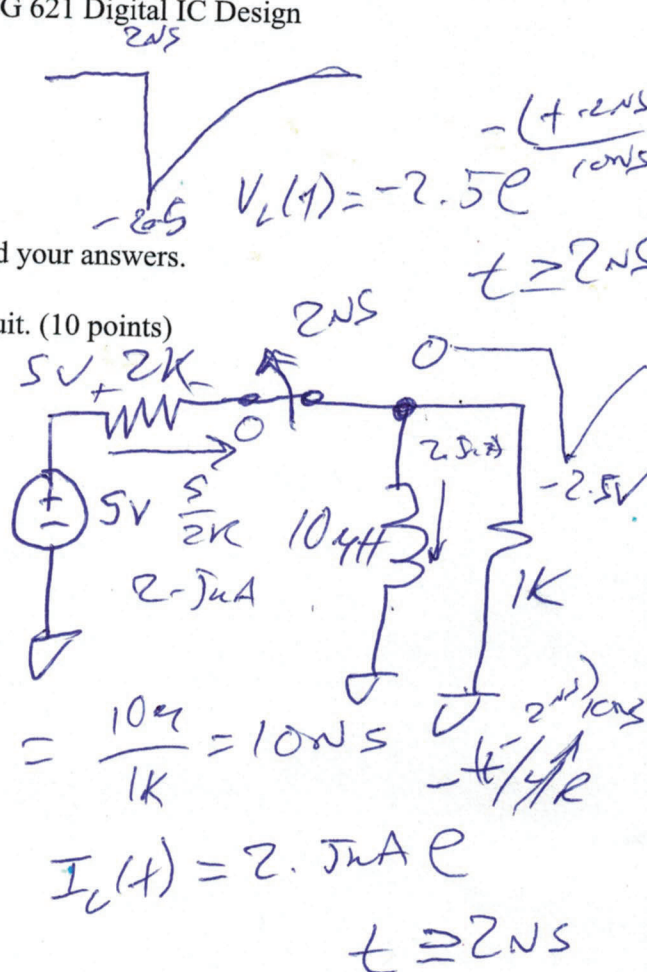 G 621 Digital IC Design
2NS
-2.5
V_L(t) = -2.5e
-(t-2NS
10NS
t ≥ 2NS
d your answers.
uit. (10 points)
2NS
5V + 2K -
0
0
5V
5
2K
2.5mA
10μH
2.5mA
-2.5V
1K
= 10μ / 1K = 10NS
2NS)/10NS
I_L(t) = 2.5mA e
t ≥ 2NS